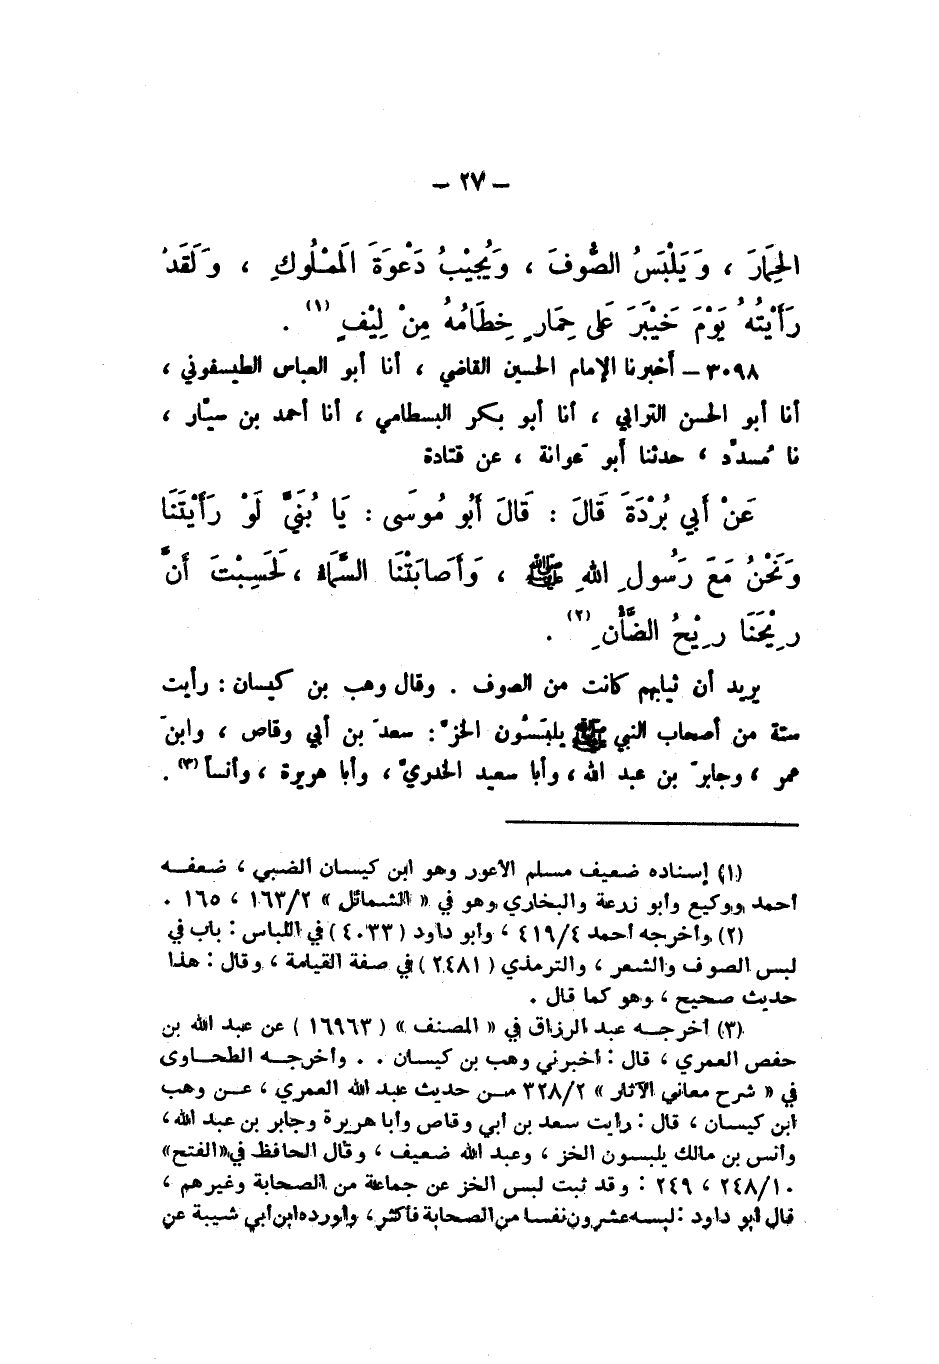 – ٢٧ –
الحِمَارَ ، وَيَلْبَسُ الصُّوفَ ، وَيُجِيْبُ دَعْوَةَ المَمْلُوكِ ، وَلَقَدْ
رَأَيْتُهُ يَوْمَ خَيْبَرَ عَلى حِمَارٍ خِطَامُهُ مِنْ لِيْفٍ (١) .
٣٠٩٨ – أخبرنا الإمام الحسين القاضي ، أنا أبو العباس الطيسفوني ،
أنا أبو الحسن الترابي ، أنا أبو بكر البسطامي ، أنا أحمد بن سيّار ،
نا مُسدّد ، حدثنا أبو عَوانة ، عن قتادة
عَنْ أَبي بُرْدَةَ قَالَ : قَالَ أَبُو مُوسَى : يَا بُنَيَّ لَوْ رَأَيْتَنَا
وَنَحْنُ مَعَ رَسُولِ اللهِ ﷺ ، وَأَصَابَتْنَا السَّمَاءُ ، لَحَسِبْتَ أَنَّ
رِيْحَنَا رِيْحُ الضَّأْنِ (٢) .
يريد أن ثيابهم كانت من الصوف . وقال وهب بن كيسان : رأيت
ستة من أصحاب النبي ﷺ يلبَسُون الخزّ : سعدَ بن أبي وقاص ، وابنَ
عمر ، وجابرَ بن عبد الله ، وأبا سعيد الخدريّ ، وأبا هريرة ، وأنساً (٣) .
(١) إسناده ضعيف مسلم الأعور وهو ابن كيسان الضبي ، ضعفه
أحمد ووكيع وأبو زرعة والبخاري وهو في « الشمائل » ١٦٣/٢ ، ١٦٥ .
(٢) وأخرجه أحمد ٤١٩/٤ ، وأبو داود ( ٤٠٣٣ ) في اللباس : باب في
لبس الصوف والشعر ، والترمذي ( ٢٤٨١ ) في صفة القيامة ، وقال : هذا
حديث صحيح ، وهو كما قال .
(٣) أخرجه عبد الرزاق في « المصنف » ( ١٦٩٦٣ ) عن عبد الله بن
حفص العمري ، قال : أخبرني وهب بن كيسان . . وأخرجه الطحاوى
في « شرح معاني الآثار » ٣٢٨/٢ من حديث عبد الله العمري ، عن وهب
ابن كيسان ، قال : رأيت سعد بن أبي وقاص وأبا هريرة وجابر بن عبد الله ،
وأنس بن مالك يلبسون الخز ، وعبد الله ضعيف ، وقال الحافظ في «الفتح»
٢٤٨/١٠ ، ٢٤٩ : وقد ثبت لبس الخز عن جماعة من الصحابة وغيرهم ،
قال أبو داود : لبسه عشرون نفسا من الصحابة فأكثر ، وأورده ابن أبي شيبة عن